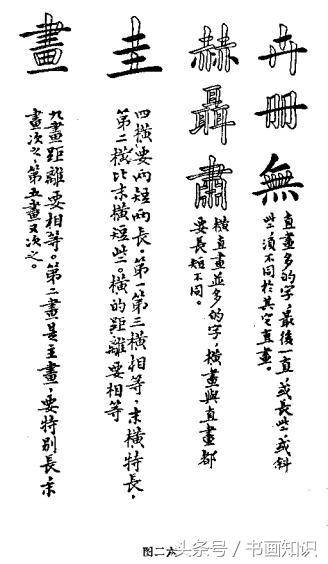 卉冊無
直畫多的字，最後一直，或長些，或斜
些，須不同於其它直畫。
赫聶肅
橫直畫並多的字，橫畫與直畫都
要長短不同。
圭
四橫，要向短向長，第一第三橫相等，末橫特長，
第二橫比末橫短些。橫的距離要相等
畫
九畫距離要相等。第二畫是主畫，要特別長，末
畫次之，第五畫又次之。
图二六
头条号 / 书画知识